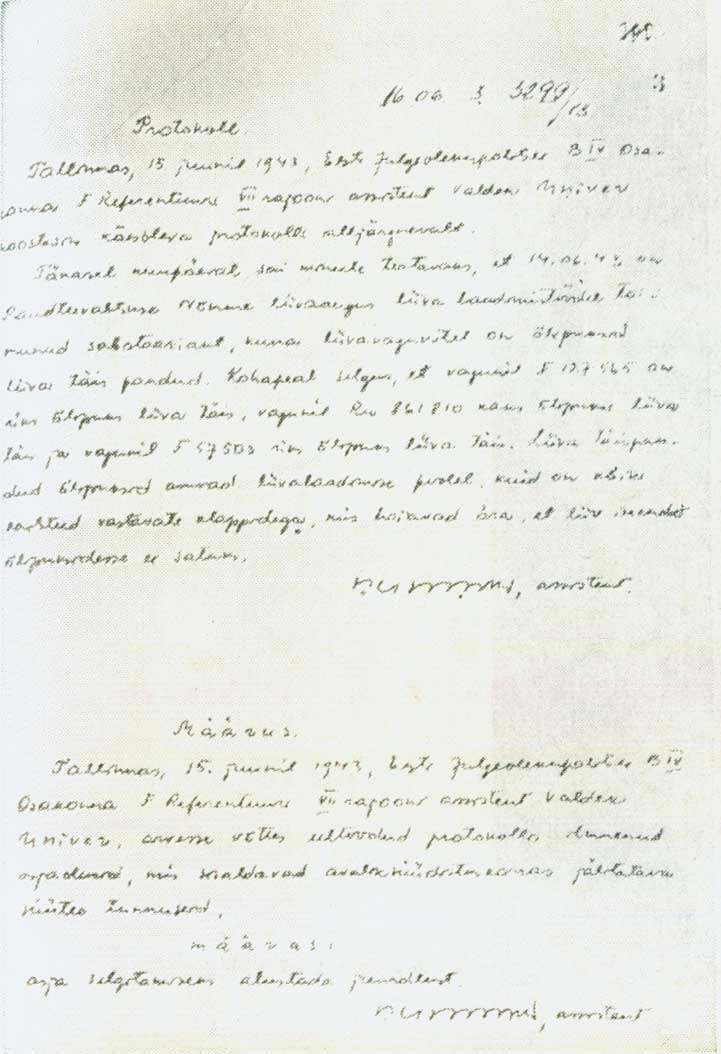 16 06 3. 3299/13
3
Protokoll.
Tallinnas, 15. juunil 1943, Eesti Julgeolekupolitsei B IV Osa-
konna F Referentuuri VII rajooni assistent Valden
koostasin käesoleva protokolli alljärgnevalt.
Tänasel kuupäeval sai minule teatavaks, et 14.06.43 on
Raudteevalitsuse Nõmme liivaaugus liiva laadimistöödel toi-
munud sabotaažiakt, kuna liivavagunitel on õlipuksid
liiva täis pandud. Kohapeal selgus, et vagunil F 127565 on
üks õlipuks liiva täis, vagunil Ru 861810 kaks õlipuksi liiva
täis ja vagunil F 57503 üks õlipuks liiva täis. Liiva täispan-
dud õlipuksid asuvad liivalaadimise poolel, kuid on kõik
kaetud vastavate klappidega, mis hoiavad ära, et liiv iseendast
õlipuksidesse ei satuks.
, assistent.
Määrus.
Tallinnas, 15. juunil 1943, Eesti Julgeolekupolitsei B IV
Osakonna F Referentuuri VII rajooni assistent Valden
, arvesse võttes eeltoodud protokollis ilmnenud
asjaolusid, mis sisaldavad avalik-süüdistuskorras jälitatava
süüteo tunnuseid,
määras:
asja selgitamiseks alustada juurdlust.
, assistent